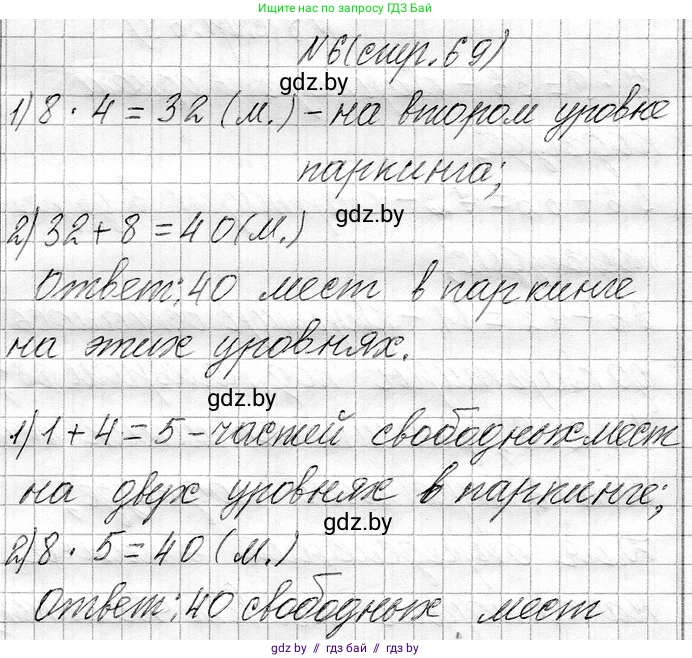 Ищите нас по запросу ГДЗ Бай
№6(стр.69)
gdz.by
1) 8 · 4 = 32 (м.) - на втором уровне
паркинга;
gdz.by
2) 32 + 8 = 40 (м.)
Ответ: 40 мест в паркинге
на этих уровнях.
gdz.by
1) 1 + 4 = 5 - частей свободных мест
на двух уровнях в паркинге;
gdz.by
2) 8 · 5 = 40 (м.)
Ответ: 40 свободных мест
gdz.by // гдз бай // gdz.by